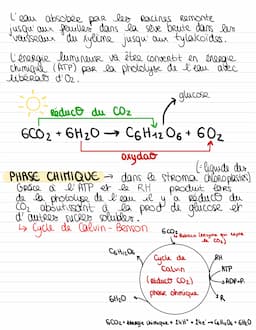 L'eau absorbée par les racines remonte
jusqu'aux feuilles dans la sève brute dans les
vaisseaux du xylème jusqu'aux tylakoïdes.
L'énergie lumineuse va être convertit en énergie
chimique (ATP) par la photolyse de l'eau avec
libération d'O2.
glucose
réducto du CO2
6CO2 + 6H2O → C6H12O6 + 6O2
oxydao
(= liquide des
PHASE CHIMIQUE → dans le stroma chloroplastes)
Grâce à l'ATP et le RH produit lors
de la photolyse de l'eau il y a réducto du
CO2 aboutissant à la prod° de glucose et
d'autres sucres solubles.
↳ Cycle de Calvin-Benson
6CO2
C6H12O6
RH
Cycle de
ATP
Calvin
ADP+Pi
(réducto CO2)
phase chimique
R
6H2O
6CO2 + énergie chimique + 24H+ + 24e- → C6H12O6 + 6H2O